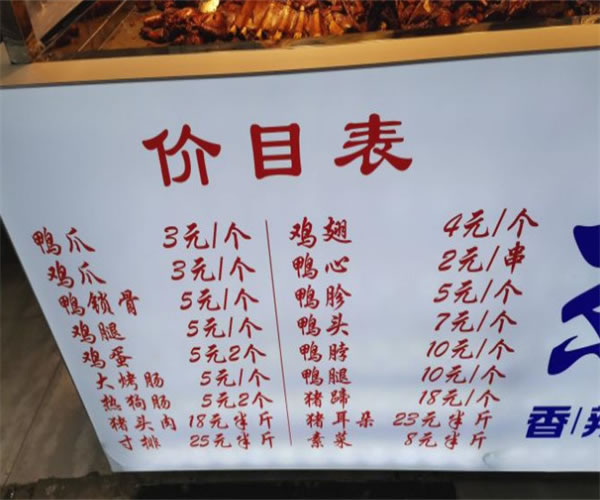 价目表
鸭爪 3元/个
鸡爪 3元/个
鸭锁骨 5元/个
鸡腿 5元/个
鸡蛋 5元2个
大烤肠 5元/个
热狗肠 5元2个
猪头肉 18元半斤
寸排 25元半斤
鸡翅 4元/个
鸭心 2元/串
鸭胗 5元/个
鸭头 7元/个
鸭脖 10元/个
鸭腿 10元/个
猪蹄 18元/个
猪耳朵 23元半斤
素菜 8元半斤
香/辣